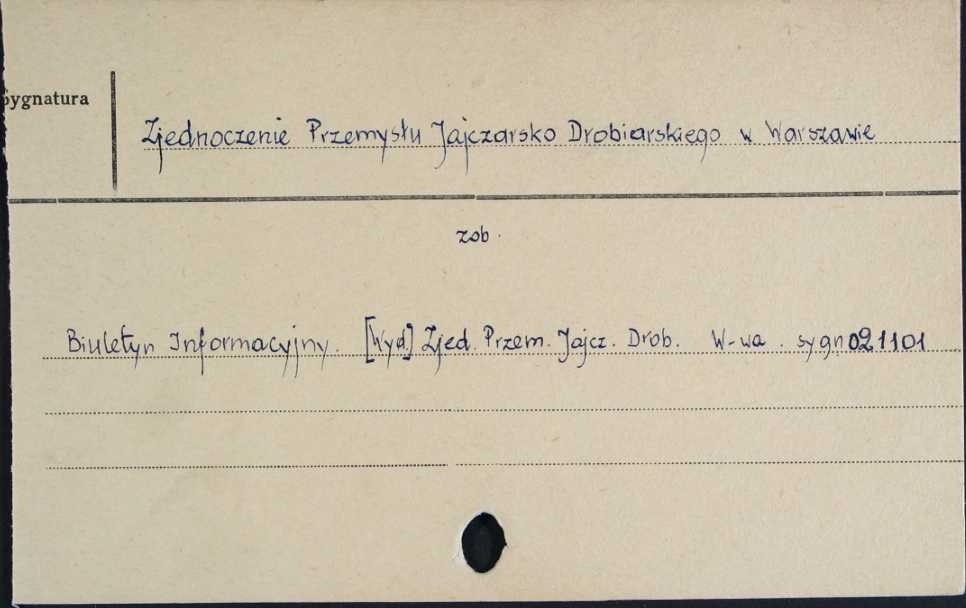 Sygnatura
Zjednoczenie Przemysłu Jajczarsko Drobiarskiego w Warszawie
zob.
Biuletyn Informacyjny. [Wyd.] Zjed. Przem. Jajcz. Drob. W-wa. sygn 021101